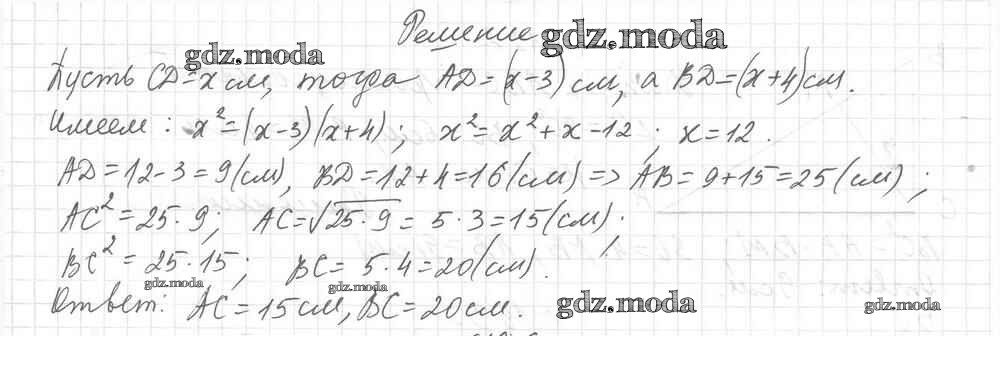 Решение
gdz.moda gdz.moda
Пусть CD=x см, тогда AD=(x-3) см, а BD=(x+4) см.
Имеем: x²=(x-3)(x+4); x²=x²+x-12; x=12.
AD=12-3=9(см), BD=12+4=16(см) => AB=9+15=25(см);
AC²=25·9; AC=√25·9=5·3=15(см);
BC²=25·15; BC=5·4=20(см).
gdz.moda gdz.moda
Ответ: AC=15см, BC=20см.
gdz.moda gdz.moda